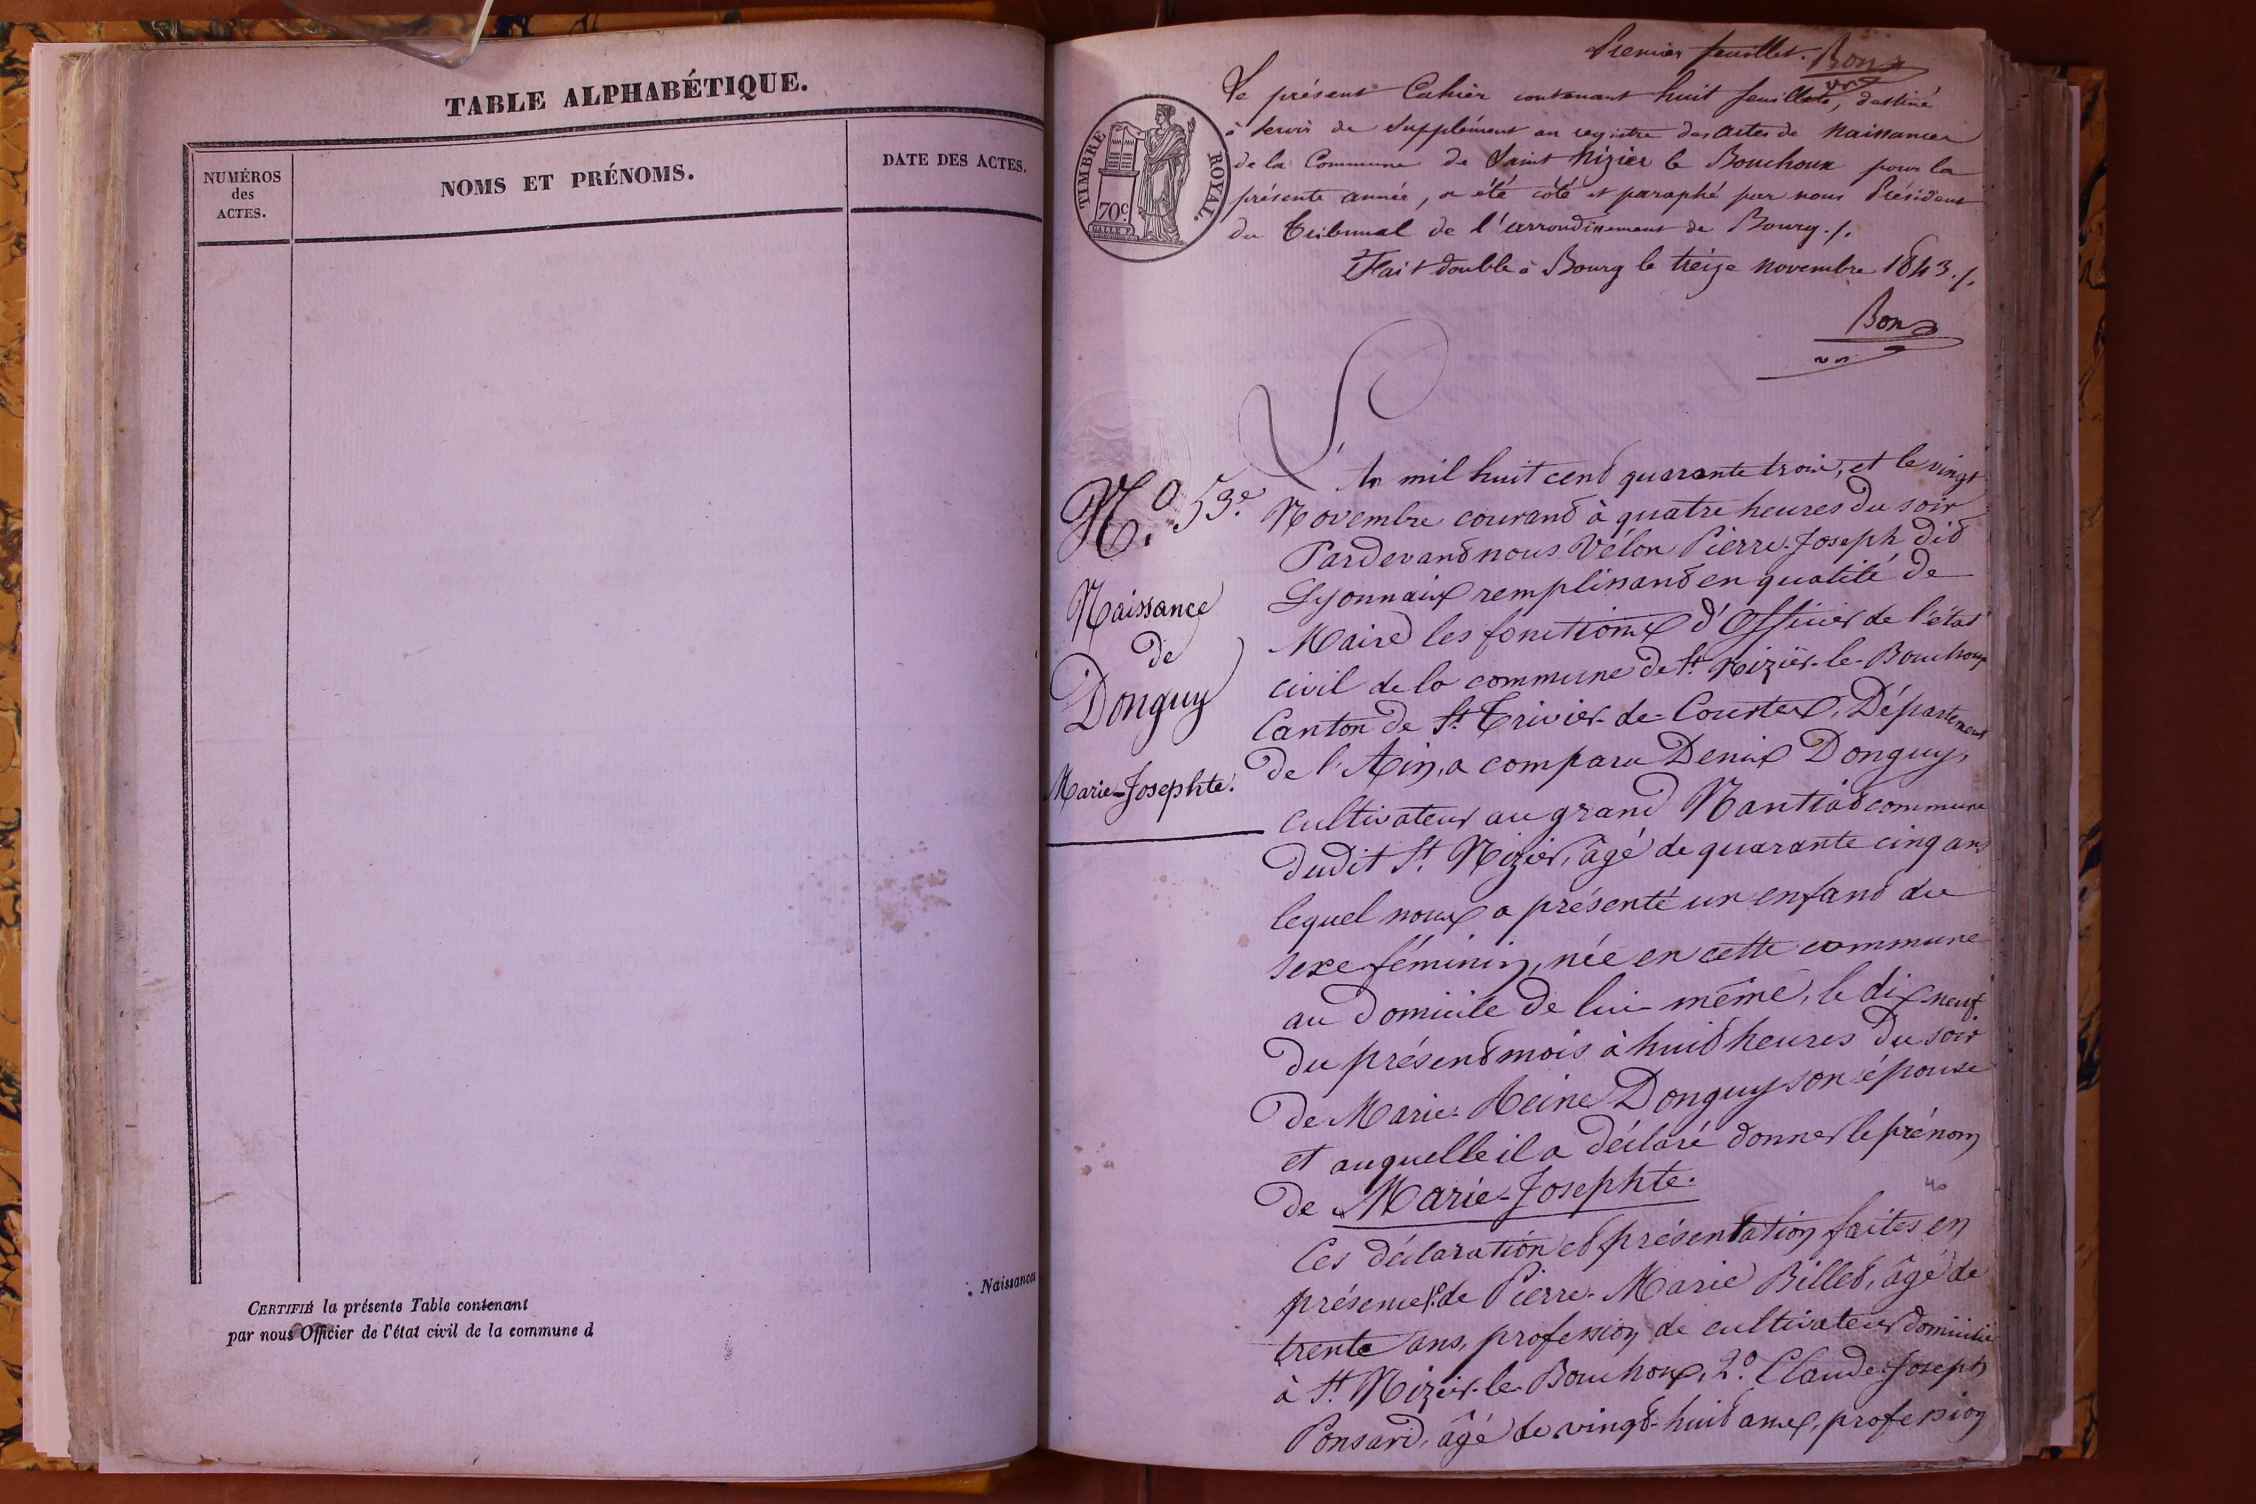 TABLE ALPHABÉTIQUE.
NUMÉROS
des
ACTES.
NOMS ET PRÉNOMS.
DATE DES ACTES.
CERTIFIÉ la présente Table contenant
par nous Officier de l'état civil de la commune d
: Naissances
Premier feuillet. Bon
TIMBRE ROYAL.
70c
Le présent Cahier contenant huit feuillets, destiné
à servir de Supplément au registre des actes de Naissances
de la Commune de Saint Nizier le Bouchoux pour la
présente année, a été coté et paraphé par nous Président
du Tribunal de l'arrondissement de Bourg./.
Fait double à Bourg le treize novembre 1843./.
Bon
N.o 53e.
Naissance
de
Donguy
Marie-Josephte.
L'An mil huit cent quarante trois, et le vingt
Novembre courant à quatre heures du soir
Pardevant nous Vélon Pierre-Joseph dit
Lyonnaix remplissant en qualité de
Maire les fonctions d'Officier de l'état
civil de la commune de St. Nizier-le-Bouchoux
Canton de St. Trivier-de-Courtes, Département
de l'Ain, a comparu Denix Donguy,
cultivateur au grand Nantiat commune
dudit St. Nizier, âgé de quarante cinq ans
lequel nous a présenté un enfant du
sexe féminin, née en cette commune
au domicile de lui-même, le dix neuf
du présent mois à huit heures du soir
de Marie-Reine Donguy son épouse
et auquelle il a déclaré donner le prénom
de Marie-Josephte.
40
Ces déclaration et présentation faites en
présence 1o de Pierre-Marie Billet, âgé de
trente ans, profession de cultivateur domicilié
à St. Nizier-le-Bouchoux, 2o. Claude-Joseph
Ponsard, âgé de vingt-huit ans, profession